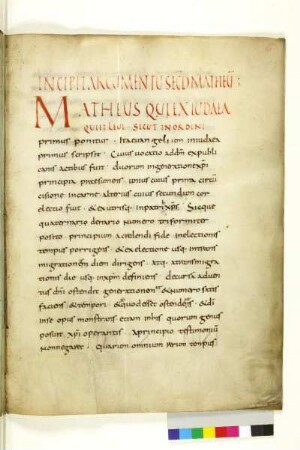 INCIPIT ARGUMENTU SECD MATHEU:
MATHEUS QUI EX IUDAEA
QUI ET LEVI SICUT IN ORDINE
primus ponitur · Ita evangelium in iudaea
primus scripsit · Cuius vocatio ad dm ex publi
canis actibus fuit · duorum in generatione xpi
principia praesumens · unius cuius prima circu
cisione in carne alterius cuius secundum cor
electio fuit · & ex utrisq· in patribus xps · Sicque
quaternario denario numero triformiter
posito principium a credendi fide in electionis
tempus porrigens · & ex electione usq· in trans
migrationem diem dirigens · atq· a transmigra
tionis die usq· in xpm definiens · decursam adven
tus dni ostendit generationem · & numero satis
faciens & tempori · & se quod esset ostendens · & di
in se opus monstrans etiam in his quorum genus
posuit · xpi operantis · a principio testimonium
non negaret · Quarum omnium rerum tempus ·